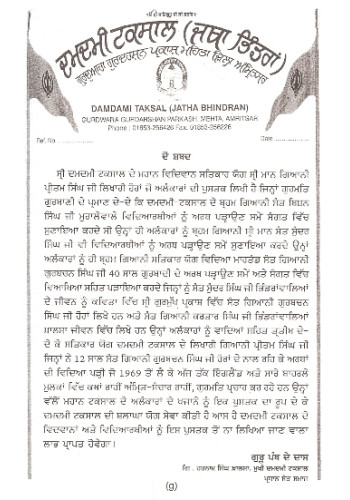 ਦਮਦਮੀ ਟਕਸਾਲ (ਜਥਾ ਭਿੰਡਰਾਂ)
ਗੁਰਦੁਆਰਾ ਗੁਰਦਰਸ਼ਨ ਪ੍ਰਕਾਸ਼ ਮਹਿਤਾ ਜ਼ਿਲਾ ਅੰਮ੍ਰਿਤਸਰ
DAMDAMI TAKSAL (JATHA BHINDRAN)
GURDWARA GURDARSHAN PARKASH, MEHTA, AMRITSAR
Phone : 01853-256426 Fax. 01853-256226
Ref. No.
Date
ਦੋ ਸ਼ਬਦ
ਸ੍ਰੀ ਦਮਦਮੀ ਟਕਸਾਲ ਦੇ ਮਹਾਨ ਵਿਦਿਵਾਨ ਸਤਿਕਾਰ ਯੋਗ ਸ੍ਰੀ ਮਾਨ ਗਿਆਨੀ
ਪ੍ਰੀਤਮ ਸਿੰਘ ਜੀ ਲਿਖਾਰੀ ਹੋਰਾਂ ਜੋ ਅਲੰਕਾਰਾਂ ਦੀ ਪੁਸਤਕ ਲਿਖੀ ਹੈ ਜਿਨ੍ਹਾਂ ਗੁਰਮਤਿ
ਗੁਰਬਾਣੀ ਦੇ ਪ੍ਰਮਾਣ ਦੇ-ਦੇ ਕਿ ਦਮਦਮੀ-ਟਕਸਾਲ ਦੇ ਬ੍ਰਹਮ ਗਿਆਨੀ ਸੰਤ ਬਿਸ਼ਨ
ਸਿੰਘ ਜੀ ਮੁਰਾਲੇਵਾਲੇ ਵਿਦਿਆਰਥੀਆਂ ਨੂੰ ਅਰਥ ਪੜ੍ਹਾਉਣ ਸਮੇਂ ਸੰਗਤ ਵਿੱਚ
ਸੁਣਾਇਆ ਕਰਦੇ ਸੀ ਉਨ੍ਹਾਂ ਹੀ ਅਲੰਕਾਰਾਂ ਨੂੰ ਬ੍ਰਹਮ ਗਿਆਨੀ ਸ੍ਰੀ ਮਾਨ ਸੰਤ ਸੁੰਦਰ
ਸਿੰਘ ਜੀ ਵੀ ਵਿਦਿਆਰਥੀਆਂ ਨੂੰ ਅਰਥ ਪੜ੍ਹਾਉਣ ਸਮੇਂ ਸੁਣਾਇਆ ਕਰਦੇ ਉਨ੍ਹਾਂ
ਅਲੰਕਾਰਾਂ ਨੂੰ ਹੀ ਬ੍ਰਹਮ ਗਿਆਨੀ ਸਤਿਕਾਰ ਯੋਗ ਵਿਦਿਆ ਮਾਰਤੰਡ ਸੰਤ ਗਿਆਨੀ
ਗੁਰਬਚਨ ਸਿੰਘ ਜੀ 40 ਸਾਲ ਗੁਰਬਾਣੀ ਦੇ ਅਰਥ ਪੜਾਉਣ ਸਮੇਂ ਅਤੇ ਸੰਗਤ ਵਿੱਚ
ਵਿਆਖਿਆ ਸਹਿਤ ਪੜਾਇਆ ਕਰਦੇ ਹਨ ਜਿਨ੍ਹਾਂ ਨੂੰ ਸੰਤ ਸੁੰਦਰ ਸਿੰਘ ਜੀ ਭਿੰਡਰਾਂਵਾਲਿਆਂ
ਦੇ ਜੀਵਨ ਨੂੰ ਕਵਿਤਾ ਵਿੱਚ ਸ੍ਰੀ ਗੁਰਮੁੱਖ ਪ੍ਰਕਾਸ਼ ਵਿੱਚ ਸੰਤ ਗਿਆਨੀ ਗੁਰਬਚਨ
ਸਿੰਘ ਜੀ ਹੋਰਾਂ ਲਿਖੇ ਹਨ ਅਤੇ ਸੰਤ ਗਿਆਨੀ ਕਰਤਾਰ ਸਿੰਘ ਜੀ ਭਿੰਡਰਾਂਵਾਲਿਆਂ
ਖ਼ਾਲਸਾ ਜੀਵਨ ਵਿੱਚ ਲਿਖੇ ਹਨ ਉਨ੍ਹਾਂ ਅਲੰਕਾਰਾਂ ਨੂੰ ਵਾਦਿਆ ਸਹਿਤ ਤ੍ਰਤੀਬ ਦੇ-
ਦੇ ਕੇ ਸਤਿਕਾਰ ਯੋਗ ਦਮਦਮੀ ਟਕਸਾਲ ਦੇ ਲਿਖਾਰੀ ਗਿਆਨੀ ਪ੍ਰੀਤਮ ਸਿੰਘ ਜੀ
ਜਿਨ੍ਹਾਂ ਨੇ 12 ਸਾਲ ਸੰਤ ਗਿਆਨੀ ਗੁਰਬਚਨ ਸਿੰਘ ਜੀ ਹੋਰਾਂ ਦੇ ਨਾਲ ਰਹਿ ਕੇ ਅਰਥਾਂ
ਦੀ ਵਿਦਿਆ ਪੜ੍ਹੀ ਜੋ 1969 ਤੋਂ ਲੈ ਕੇ ਅੱਜ ਤੱਕ ਇੰਗਲੈਂਡ ਅਤੇ ਸਾਰੇ ਬਾਹਰਲੇ
ਮੁਲਕਾਂ ਵਿੱਚ ਕਥਾ ਰਾਹੀਂ ਅੰਮ੍ਰਿਤ-ਸੰਚਾਰ ਰਾਹੀਂ, ਗੁਰਮਤਿ ਪ੍ਰਚਾਰ ਕਰ ਰਹੇ ਹਨ ਉਨ੍ਹਾਂ
ਵੱਲੋਂ ਮਹਾਨ ਟਕਸਾਲ ਦੇ ਅਲੰਕਾਰਾਂ ਦੇ ਖਜ਼ਾਨੇ ਨੂੰ ਇਕ ਪੁਸਤਕ ਦਾ ਰੂਪ ਦੇ ਕੇ
ਦਮਦਮੀ ਟਕਸਾਲ ਦੀ ਸ਼ਲਾਘਾ ਯੋਗ ਸੇਵਾ ਕੀਤੀ ਹੈ ਆਸ ਹੈ ਦਮਦਮੀ ਟਕਸਾਲ ਦੇ
ਵਿਦਵਾਨਾਂ ਅਤੇ ਵਿਦਿਆਰਥੀਆਂ ਨੂੰ ਇਸ ਪੁਸਤਕ ਤੋਂ ਨਾ ਲਿਖਿਆ ਜਾਣ ਵਾਲਾ
ਲਾਭ ਪ੍ਰਾਪਤ ਹੋਵੇਗਾ।
ਗੁਰੂ ਪੰਥ ਦੇ ਦਾਸ
ਗਿ. ਹਰਨਾਮ ਸਿੰਘ ਖ਼ਾਲਸਾ, ਮੁਖੀ ਦਮਦਮੀ ਟਕਸਾਲ
ਪ੍ਰਧਾਨ ਸੰਤ ਸਮਾਜ
(g)